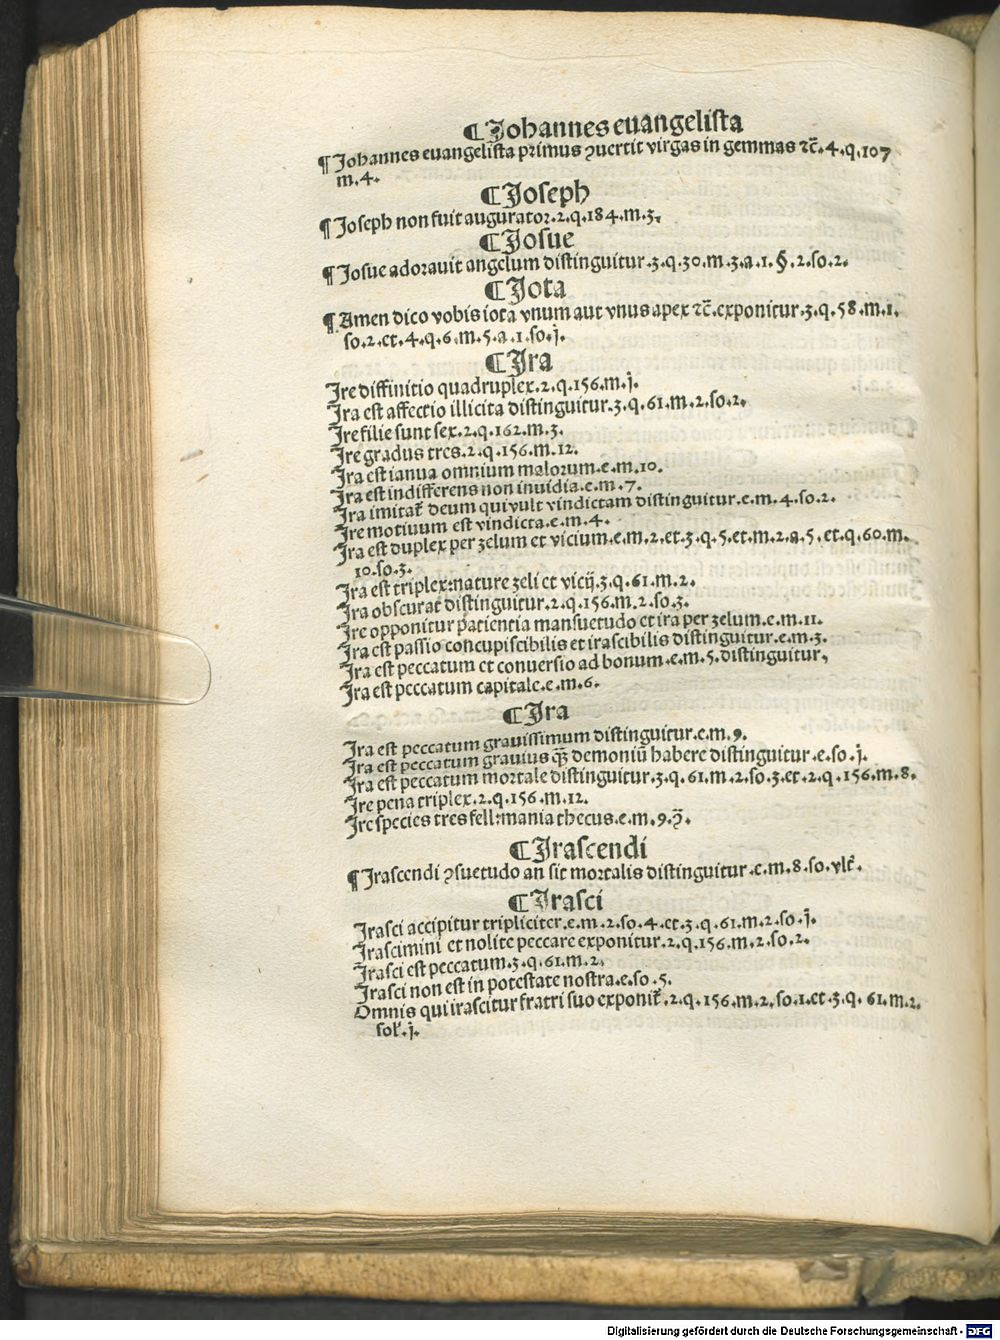 ¶Johannes euangelista
¶Johannes euangelista primus ꝯuertit virgas in gemmas ⁊c̄.4.q.107
m.4.
¶Joseph
¶Joseph non fuit augurator.2.q.184.m.3.
¶Josue
¶Josue adorauit angelum distinguitur.3.q.30.m.3.a.1.§.2.so.2.
¶Jota
¶Amen dico vobis iota vnum aut vnus apex ⁊c̄.exponitur.3.q.58.m.1.
so.2.et.4.q.6.m.5.a.1.so.j.
¶Jra
Jre diffinitio quadruplex.2.q.156.m.j.
Jra est affectio illicita distinguitur.3.q.61.m.2.so.2.
Jre filie sunt sex.2.q.162.m.3.
Jre gradus tres.2.q.156.m.12.
Jra est ianua omnium malorum.e.m.10.
Jra est indifferens non inuidia.e.m.7.
Jra imitat᷑ deum qui vult vindictam distinguitur.e.m.4.so.2.
Jre motiuum est vindicta.e.m.4.
Jra est duplex per zelum et vicium.e.m.2.et.3.q.5.et.m.2.a.5.et.q.60.m.
10.so.3.
Jra est triplex:nature zeli et vicij.3.q.61.m.2.
Jra obscurat distinguitur.2.q.156.m.2.so.3.
Jre opponitur patientia mansuetudo et ira per zelum.e.m.11.
Jra est passio concupiscibilis et irascibilis distinguitur.e.m.3.
Jra est peccatum et conuersio ad bonum.e.m.5.distinguitur,
Jra est peccatum capitale.e.m.6.
¶Jra
Jra est peccatum grauissimum distinguitur.e.m.9.
Jra est peccatum grauius qȝ̄ demoniū habere distinguitur.e.so.j.
Jra est peccatum mortale distinguitur.3.q.61.m.2.so.3.et.2.q.156.m.8.
Jre pena triplex.2.q.156.m.12.
Jre species tres fell:mania thecus.e.m.9.
¶Jrascendi
¶Jrascendi ꝯsuetudo an sit mortalis distinguitur.e.m.8.so.vlt᷑.
¶Jrasci
Jrasci accipitur tripliciter.e.m.2.so.4.et.3.q.61.m.2.so.j.
Jrascimini et nolite peccare exponitur.2.q.156.m.2.so.2.
Jrasci est peccatum.3.q.61.m.2.
Jrasci non est in potestate nostra.e.so.5.
Omnis qui irascitur fratri suo exponit᷑.2.q.156.m.2.so.1.et.3.q.61.m.2.
sol᷑.j.
Digitalisierung gefördert durch die Deutsche Forschungsgemeinschaft - DFG